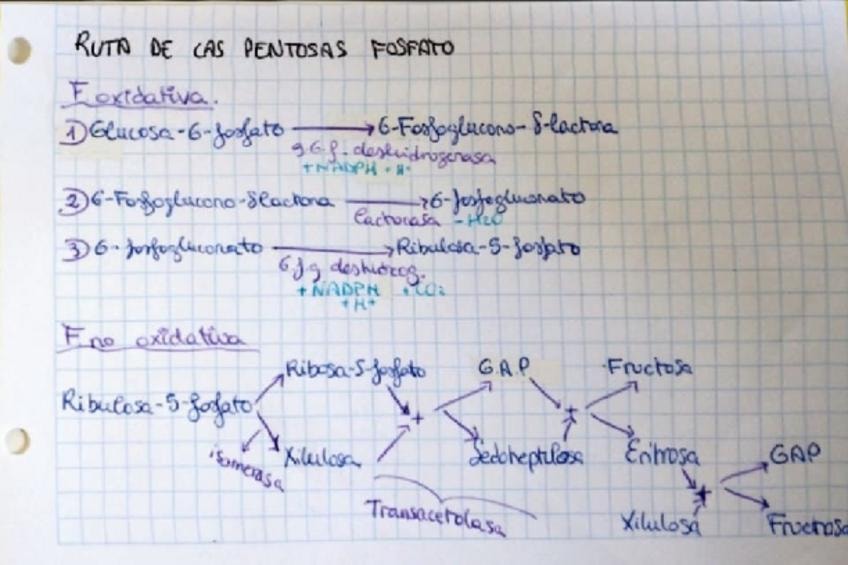 RUTA DE LAS PENTOSAS FOSFATO
F oxidativa.
1) Glucosa-6-fosfato → 6-Fosfoglucono-δ-lactona
g.6.f. deshidrogenasa
+NADPH + H+
2) 6-Fosfoglucono-δlactona → 6-fosfogluconato
lactonasa -H2O
3) 6-fosfogluconato → Ribulosa-5-fosfato
6 f g deshidrog.
+NADPH +CO2
+H+
F no oxidativa
Ribosa-5-fosfato G.A.P Fructosa
Ribulosa-5-fosfato + +
isomerasa Xilulosa Sedoheptulosa Eritrosa GAP
+
Transacetolasa Xilulosa Fructosa